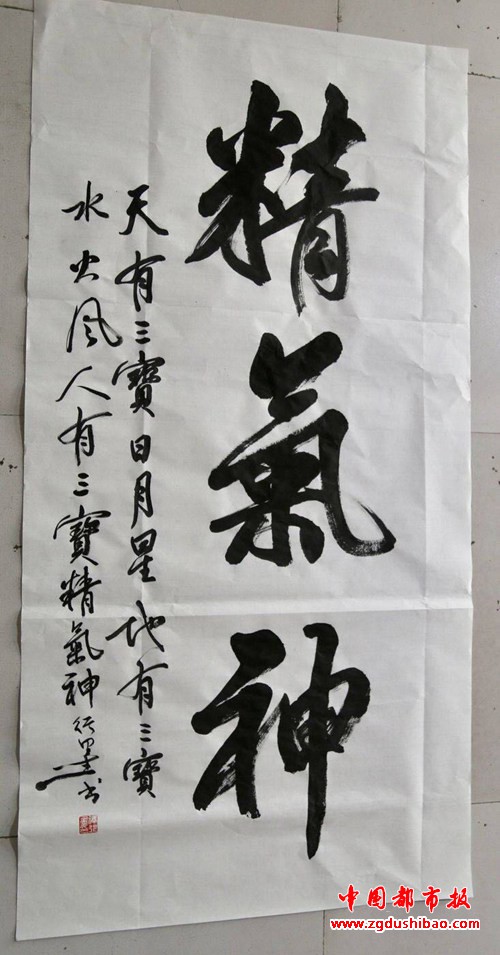 精氣神
天有三寶日月星地有三寶
水火风人有三寶精氣神
中国都市报
www.zgdushibao.com